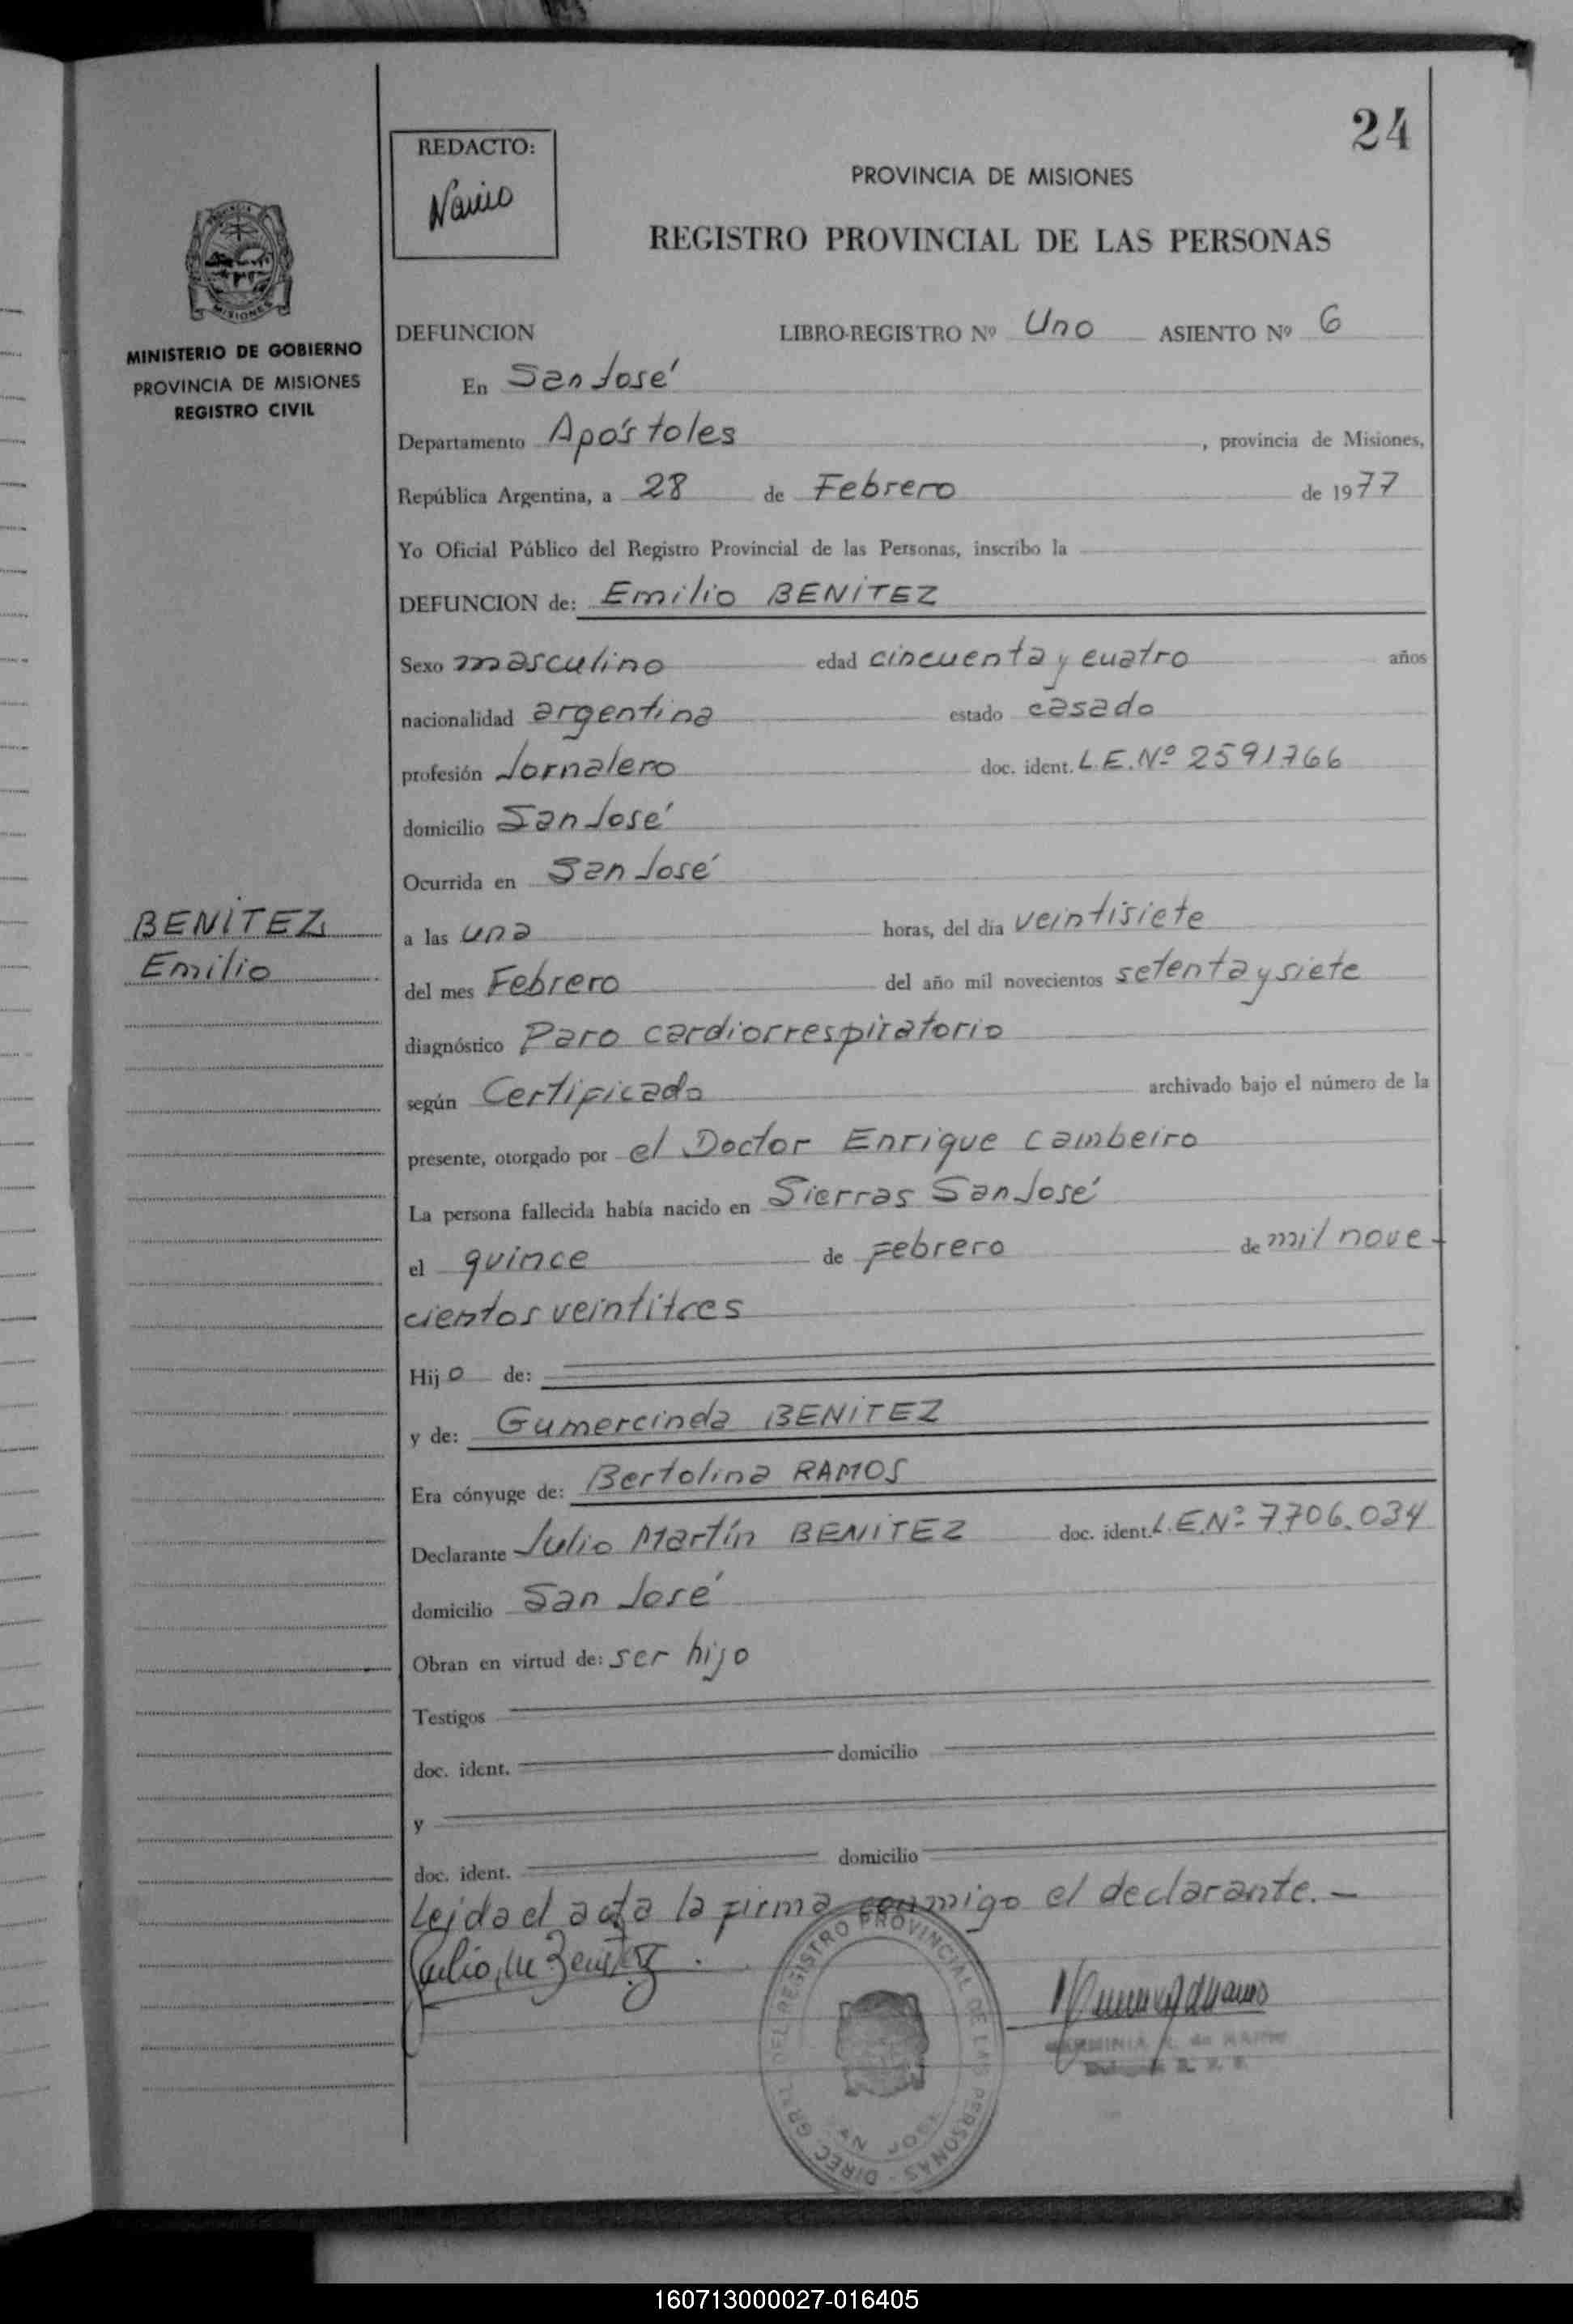 24
REDACTO:
PROVINCIA DE MISIONES
REGISTRO PROVINCIAL DE LAS PERSONAS
MISIONES
MINISTERIO DE GOBIERNO
PROVINCIA DE MISIONES
REGISTRO CIVIL
DEFUNCION LIBRO-REGISTRO Nº Uno ASIENTO Nº 6
En San José
Departamento Apóstoles, provincia de Misiones,
República Argentina, a 28 de Febrero de 1977
Yo Oficial Público del Registro Provincial de las Personas, inscribo la
DEFUNCION de: Emilio BENITEZ
Sexo masculino edad cincuenta y cuatro años
nacionalidad argentina estado casado
profesión Jornalero doc. ident. L.E.Nº 2591766
domicilio San José
Ocurrida en San José
BENITEZ
Emilio
a las una horas, del día veintisiete
del mes Febrero del año mil novecientos setenta y siete
diagnóstico Paro cardiorrespiratorio
según Certificado archivado bajo el número de la
presente, otorgado por el Doctor Enrique Cambeiro
La persona fallecida había nacido en Sierras San José
el quince de Febrero de mil nove-
cientos veintitres
Hijo de:
y de: Gumercinda BENITEZ
Era cónyuge de: Bertolina RAMOS
Declarante Julio Martín BENITEZ doc. ident. L.E.Nº 7.706.034
domicilio San José
Obran en virtud de: ser hijo
Testigos
doc. ident. domicilio
y
doc. ident. domicilio
Leida el acta la firma conmigo el declarante.-
Julio M Benitez
DIREC. GRAL. DEL REGISTRO PROVINCIAL DE LAS PERSONAS - SAN JOSE
160713000027-016405